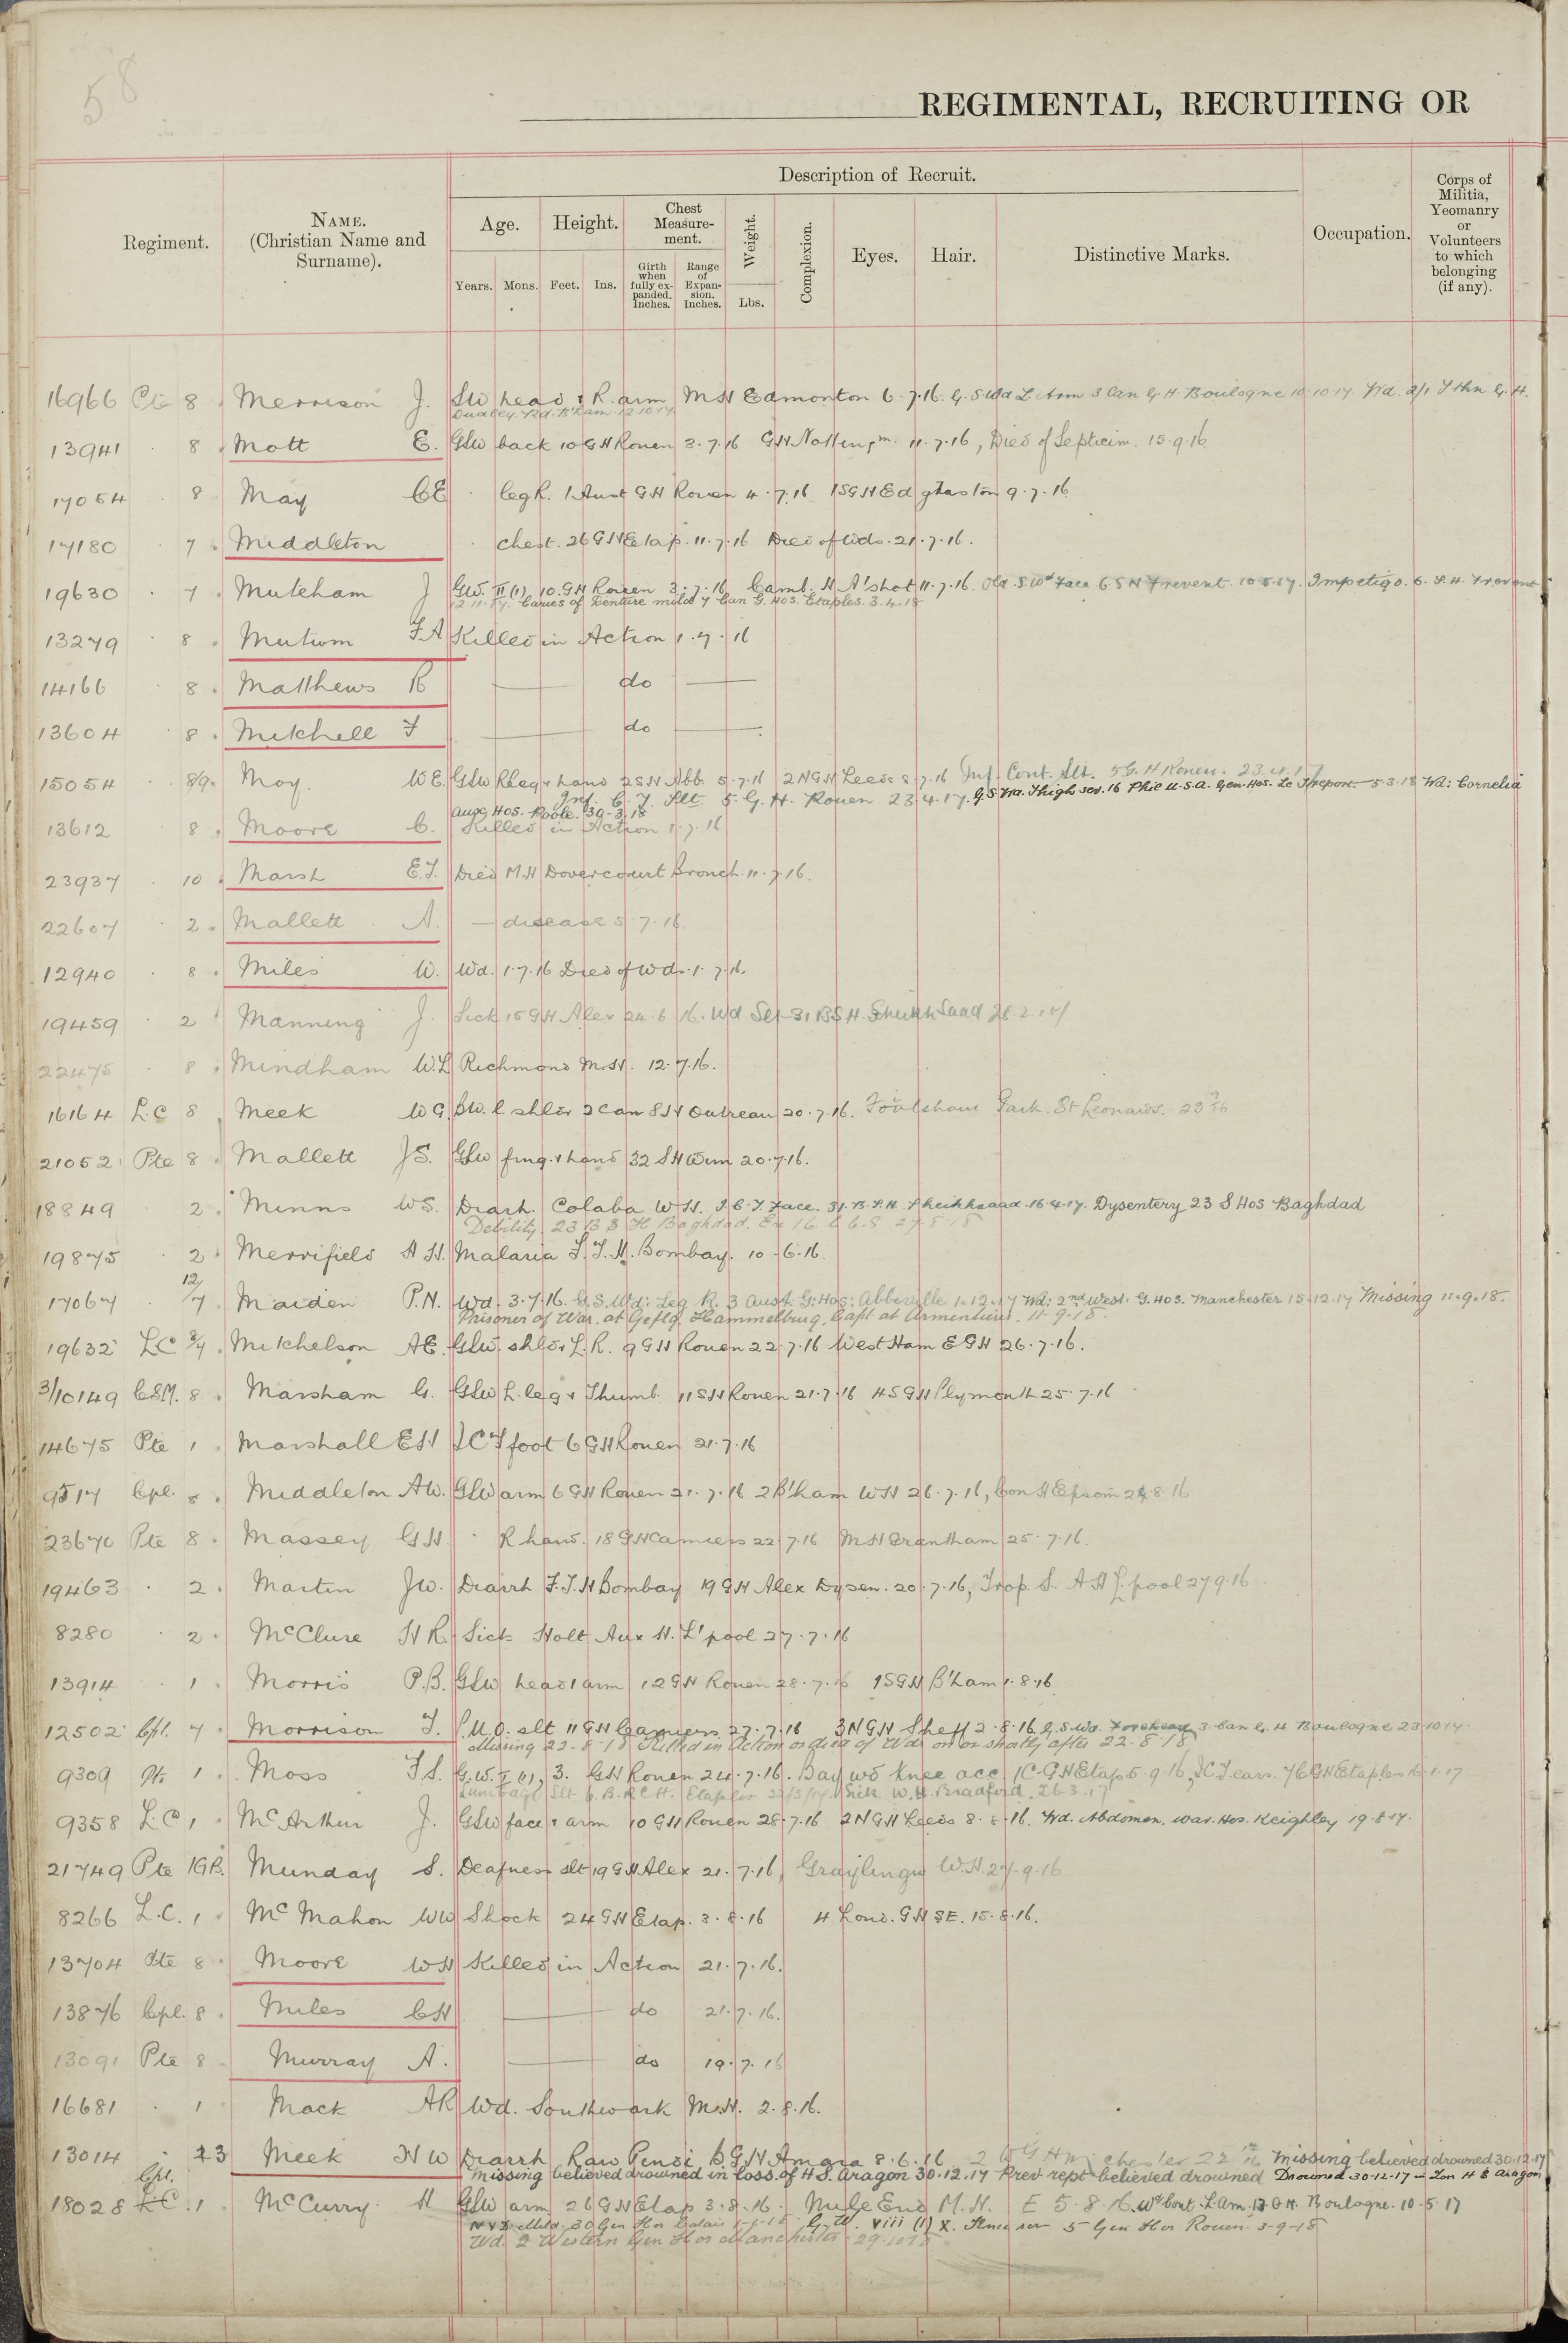 58
REGIMENTAL, RECRUITING OR
Description of Recruit.
Regiment.
NAME.
(Christian Name and
Surname).
Age.
Height.
Chest
Measure-
ment.
Weight.
Complexion.
Eyes.
Hair.
Distinctive Marks.
Occupation.
Corps of
Militia,
Yeomanry
or
Volunteers
to which
belonging
(if any).
Years.
Mons.
Feet.
Ins.
Girth
when
fully ex-
panded.
Inches.
Range
of
Expan-
sion.
Inches.
Lbs.
16966 Pte 8 Merrison J. SW head & R. arm MH Edmonton 6.7.16. G.S.Wd L Arm 3 Can G.H. Boulogne 10.10.17 Wd. 2/1 Sthn G.H.
Dudley Rd. B'ham 12.10.17
13941 8 Mott E. GSW back 10 GH Rouen 3.7.16 GH Notting'm. 11.7.16, Died of Septicim. 15.9.16
17054 8 May CE leg R. 1 Aust GH Rouen 4.7.16 1SGH Edgbaston 9.7.16
17180 7 Middleton chest. 26 GH Etap. 11.7.16 Died of Wds. 21.7.16.
19630 7 Muteham J GW. II (1) 10. GH Rouen 3.7.16 Camb. H A'shot 11.7.16. Old S.Wd Face 6 S H Frevent 10.5.17. Impetigo. 6. S.H. Frevent
12.11.17. Caries of Denture mild 7 Can G. Hos. Etaples. 3.4.18
13279 8 Mutum F.A Killed in Action 1.7.16
14166 8 Matthews R do
13604 8 Mitchell F do
15054 8/9 Moy. W E. GSW R leg & hand 2 SH Abb. 5.7.16 2NGH Leeds 8.7.16 Inf. Cont. Slt. 5 G. H Rouen. 23.4.17
Inf. C. T. Slt 5. G. H. Rouen 23.4.17. G.S. Wd. Thigh sev. 16 Phil U.S.A. Gen. Hos. Le Treport 5-3-18 Wd: Cornelia
Aux. Hos. Poole. 30-3-18
13612 8 Moore C. Killed in Action 1.7.16
23937 10 Marsh E.J. Died MH Dovercourt Bronch. 11.7.16.
22607 2 Mallett A. — disease 5.7.16
12940 8 Miles W. Wd. 1.7.16 Died of Wds. 1.7.16.
19459 2 Manning J. Sick 15 GH Alex 24.6.16. Wd Sev 31 BSH. Sheikh Saad 26.2.17
22475 8 Mindham W.L Richmond M.H. 12.7.16.
16164 L.C 8 Meek W G. SW. l shldr 2 Can SH Outreau 20.7.16. Foulsham Park. St Leonards. 23
21052 Pte 8 Mallett J S. GSW fing. & hand 32 SH Wim 20.7.16.
18849 2 Minns W S. Diarh. Colaba W H. I.C.T. Face. 31. B.S.H. Sheikhsaad 16.4.17. Dysentery 23 S Hos Baghdad
Debility 23 B S H Baghdad. Ex 16 C C.S 27-8-18
19875 2 Merrifield A H. Malaria F. F. H. Bombay. 10.6.16.
17067 12/7 Maiden P.N. Wd. 3.7.16. G.S. Wd: Leg R. 3 Aust. G. Hos: Abbeville 1.12.17 Wd: 2nd West. G. Hos. Manchester 15.12.17 Missing 11.9.18.
Prisoner of War. at Gefhg. Hammelburg, Capt at Armentieres. 11-9-18.
19632 LC 8/7 Mitchelson A E. GSW. shldr L.R. 9 GH Rouen 22.7.16 West Ham E GH 26.7.16.
3/10149 CSM. 8 Marsham G. GSW L. leg & Thumb. 11 SH Rouen 21.7.16 4 SGH Plymouth 25.7.16
14675 Pte 1 Marshall EH ICT foot 6 GH Rouen 21.7.16
9517 Cpl. 8 Middleton A W. GSW arm 6 GH Rouen 21.7.16 2 B'ham W H 26.7.16, Con H Epsom 24.8.16
23670 Pte 8 Massey G H. R hand. 18 GH Camiers 22.7.16 MH Grantham 25.7.16.
19463 2 Martin J W. Diarrh F.F.H Bombay 19 GH Alex Dysen. 20.7.16, Trop. S. A H L'pool 27.9.16
8280 2 McClure H R. Sick Holt Aux H. L'pool 27.7.16
13914 1 Morris P.B. GSW head & arm 12 GH Rouen 28.7.16 1SGH B'ham 1.8.16
12502 Cpl. 7 Morrison T. P.U.O. slt 11 GH Camiers 27.7.16 3NGH Sheff 2.8.16. G.S.Wd. Forehead 3 Can G. H Boulogne 23.10.17.
Missing 22-8-18 Killed in Action or died of Wds on or shortly after 22-8-18
9309 Pte 1 Moss F S. G.W. I (1), 3. GH Rouen 24.7.16. Bay wd Knee acc 1 C. GH Etap 5.9.16, ICT ears. 7C GH Etaples 16.1.17
Lumbago Slt 6. B.R.C.H. Etaples 22/3/17. Sick W. H. Bradford. 26.3.17
9358 L.C 1 McArthur J. GSW face & arm 10 GH Rouen 28.7.16 2NGH Leeds 8.8.16. Wd. Abdomen. War. Hos. Keighley 19.8.17.
21749 Pte 1GB. Munday S. Deafness slt 19 GH Alex 21.7.16, Graylingw W.H. 27.9.16
8266 L.C. 1 McMahon WW Shock 24 GH Etap. 3.8.16 4 Lond. GH SE. 15.8.16.
13704 Pte 8 Moore W H Killed in Action 21.7.16.
13876 Cpl. 8 Miles C H do 21.7.16.
13091 Pte 8 Murray A. do 19.7.16
16681 1 Mack AR Wd. Southwark M.H. 2.8.16.
13014 Meek H W Diarrh Raw Pindi B GH Amara 8.6.16 Missing believed drowned 30.12.17
Missing believed drowned in loss of H S. Aragon 30.12.17 Prev rept believed drowned Drowned 30-12-17
18028 Cpl. L.C. 1 McCurry H GSW arm 26 GH Etap 3.8.16. Mile End M.H. E 5.8.16. Boulogne. 10.5.17
30 Gen Hos Calais viii (1) X. Knee sev 5 Gen Hos Rouen. 3-9-18
Wd. 2 Western Gen Hos Manchester